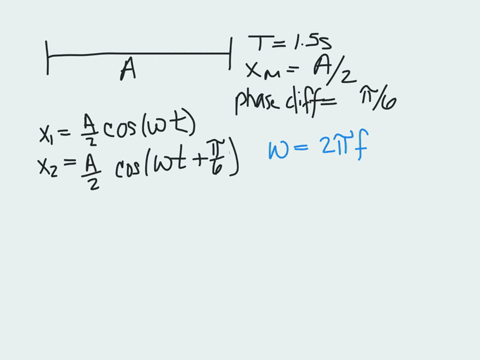 A
T = 1.5s
xₘ = A/2
phase diff = π/6
x₁ = A/2 cos(ωt)
x₂ = A/2 cos(ωt + π/6)
ω = 2πf